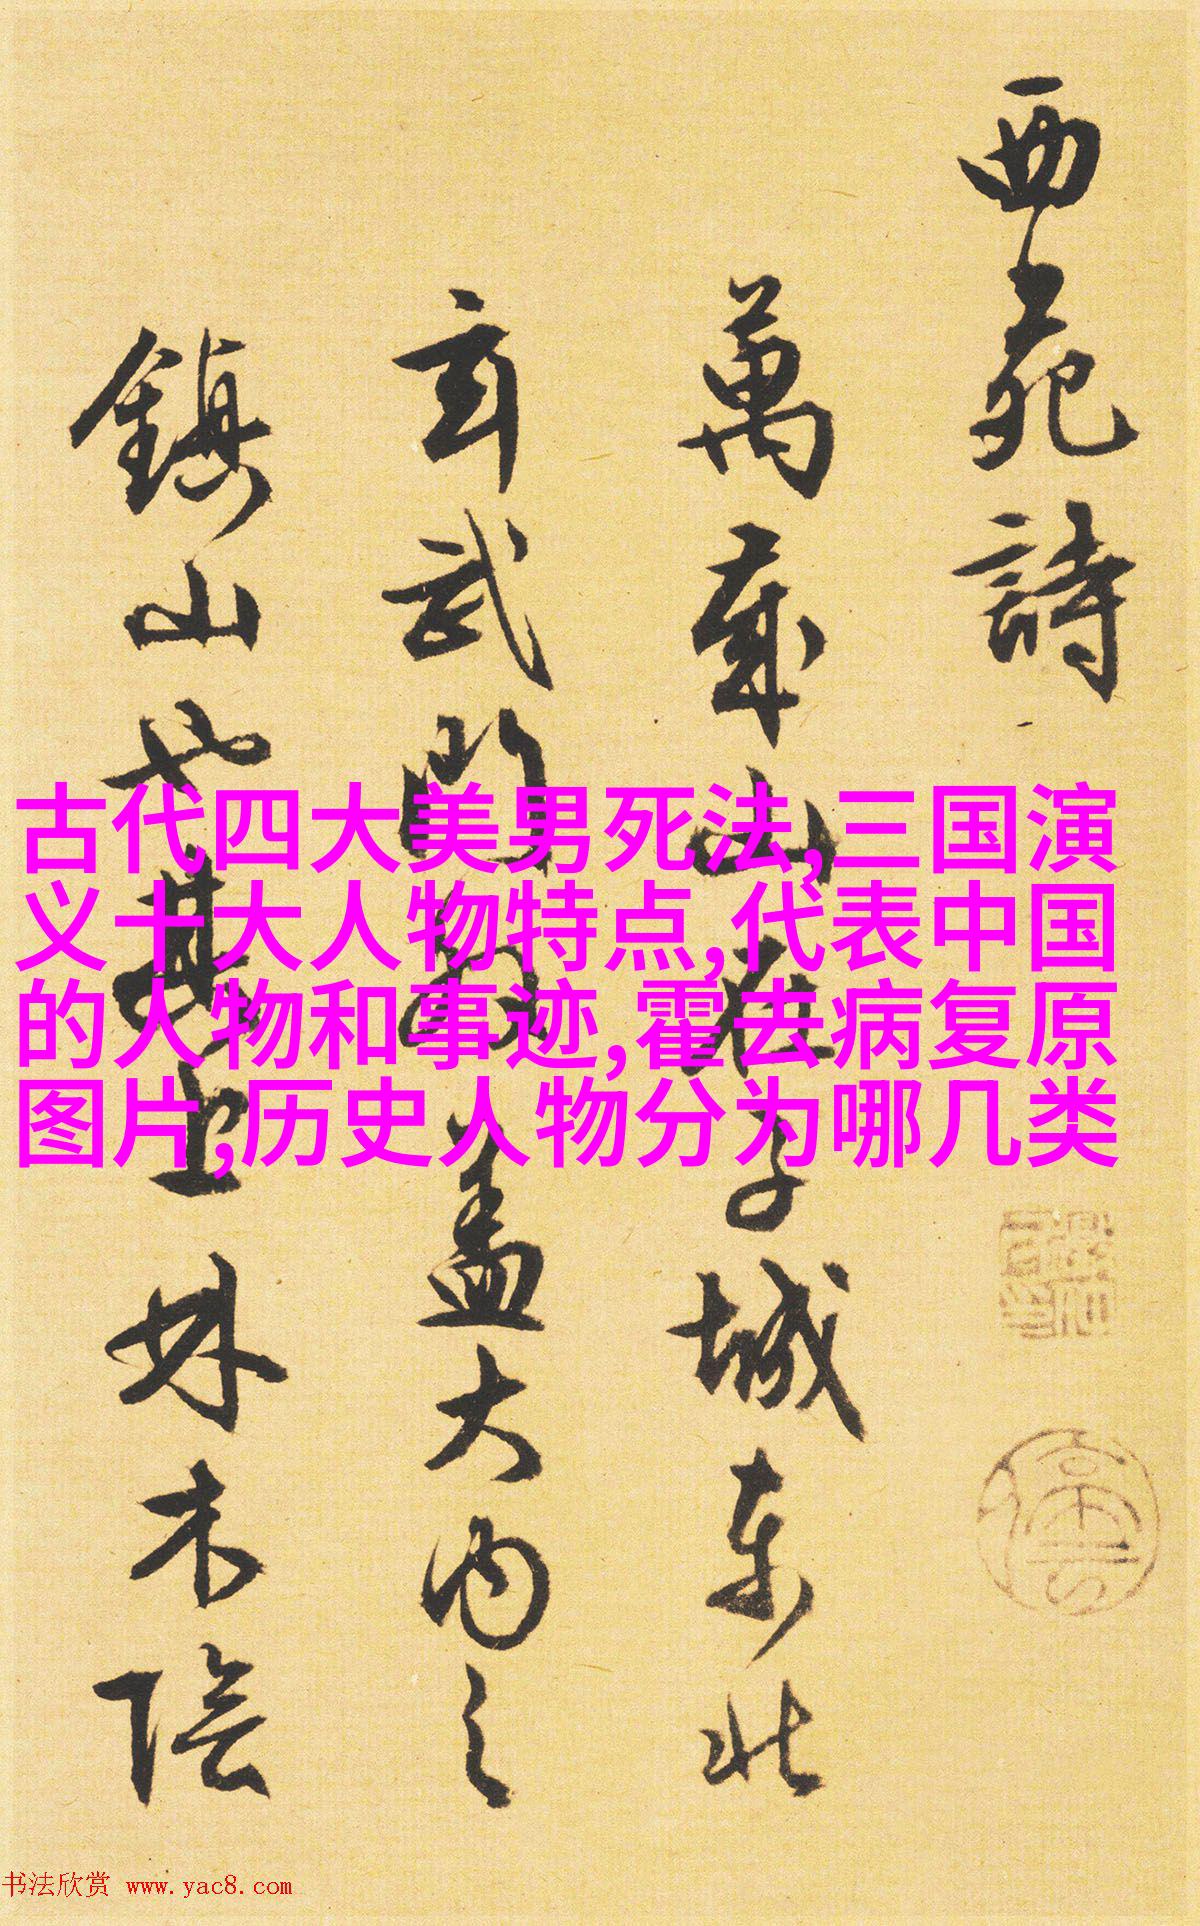 西苑詩
萬歲山在子城東北
玄武門外蓋大內之
鎮山也其上林木陰
古代四大美男死法,三国演
义十大人物特点,代表中国
的人物和事迹,霍去病复原
图片,历史人物分为哪几类
书法欣赏 www.yac8.com